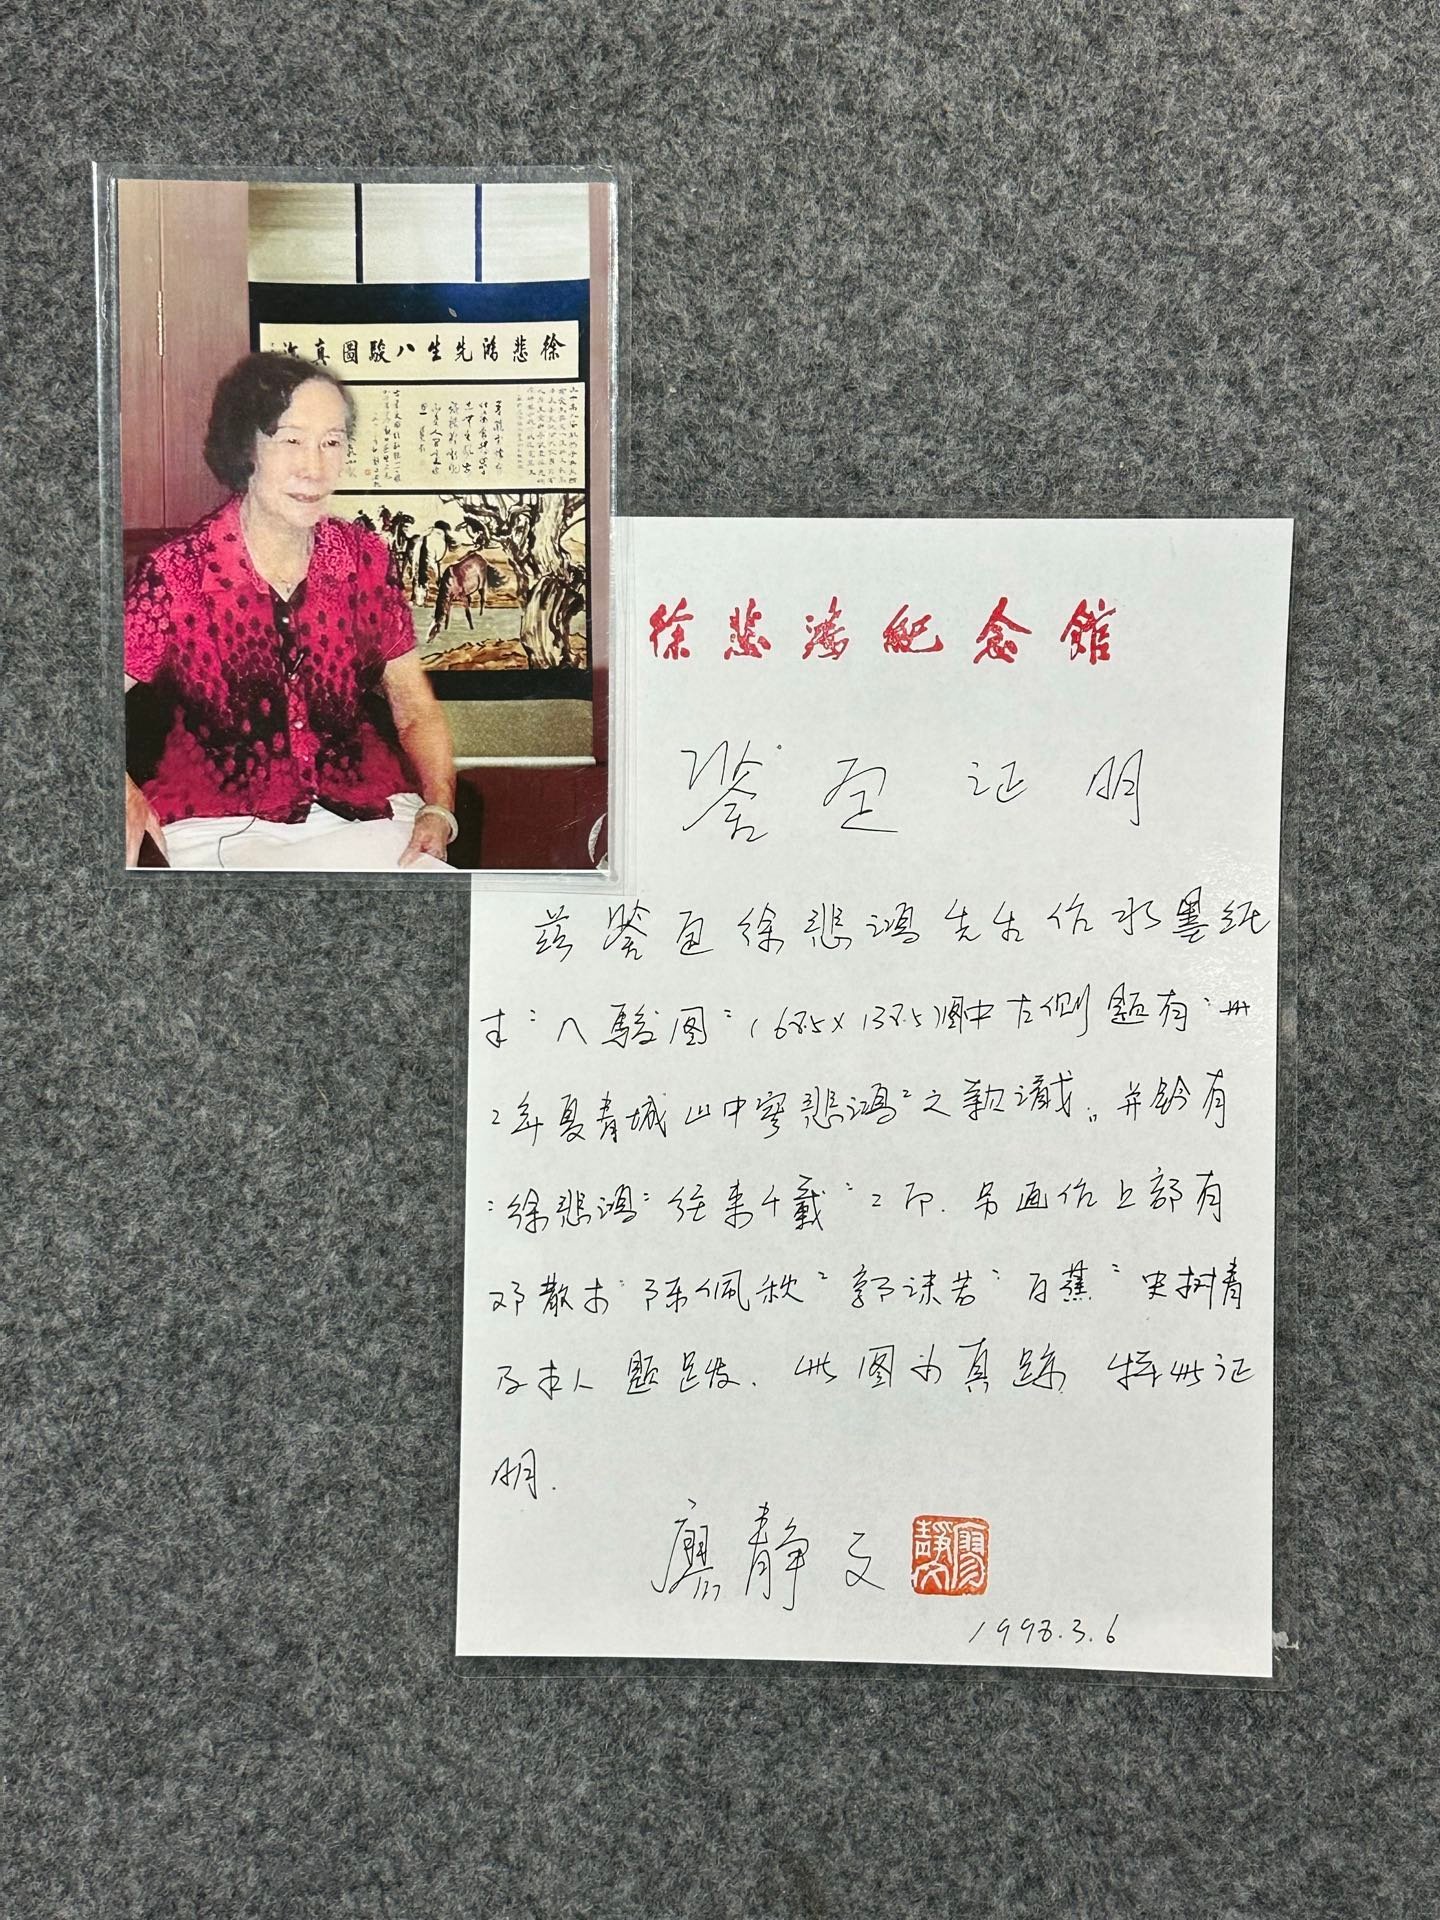 徐悲鸿先生八駿圖真迹
徐悲鸿纪念馆
鉴定证明
兹鉴定徐悲鸿先生作水墨纸
本"八骏图"(68.5×138.5)图中右侧题有"卅
二年夏青城山中写悲鸿"之款识。并钤有
"徐悲鸿"往来千载"二印.另画作上部有
邓散木"陈佩秋"郭沫若"白蕉"史树青
及本人题跋.此图为真迹 特此证
明.
廖静文
廖靜文
1998.3.6